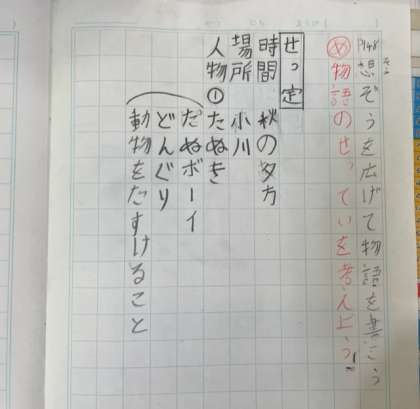 P148 想ぞうを広げて物語を書こう
そう
め 物語のせっていを考えよう!
せっ定
時間 秋の夕方
場所 小川
人物① たぬき
たぬボーイ
どんぐり
動物をたすけること